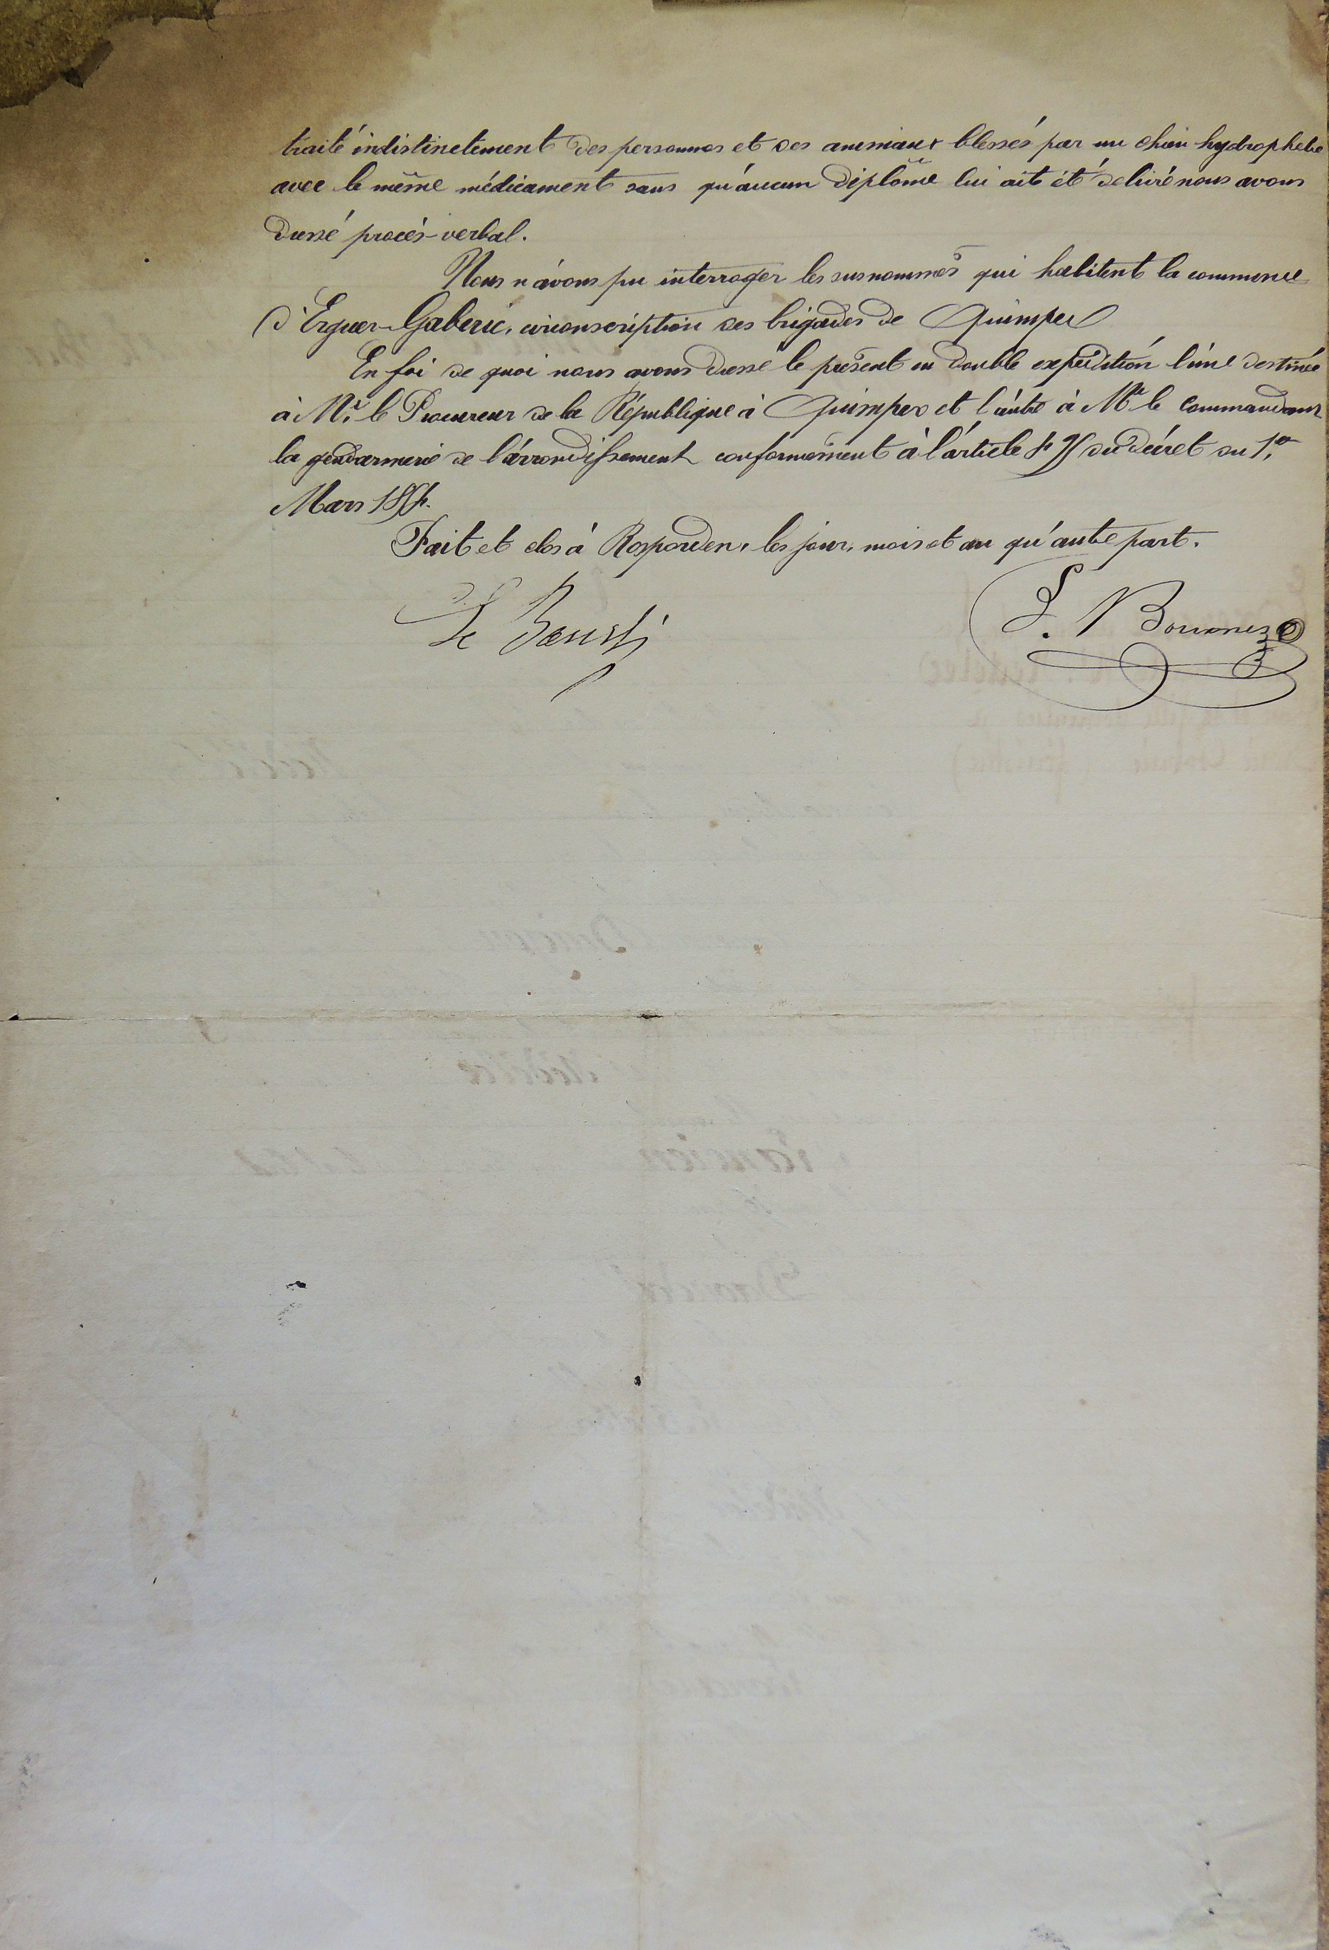 traité indistinctement des personnes et des animaux blessés par un chien hydrophobe
avec le même médicament sans qu'aucun diplôme lui ait été délivré nous avons
dressé procès-verbal.
Nous n'avons pu interroger les susnommés qui habitent la commune
d'Erguer-Gaberic, circonscription des brigades de Quimper
En foi de quoi nous avons dressé le présent en double expédition l'une destinée
à Mr. le Procureur de la République à Quimper et l'autre à Mr le Commandant
la gendarmerie de l'arrondissement conformément à l'article du décret du 1er
Mars 1854.
Fait et clos à Rosporden, les jour, mois et an qu'autre part.
Le